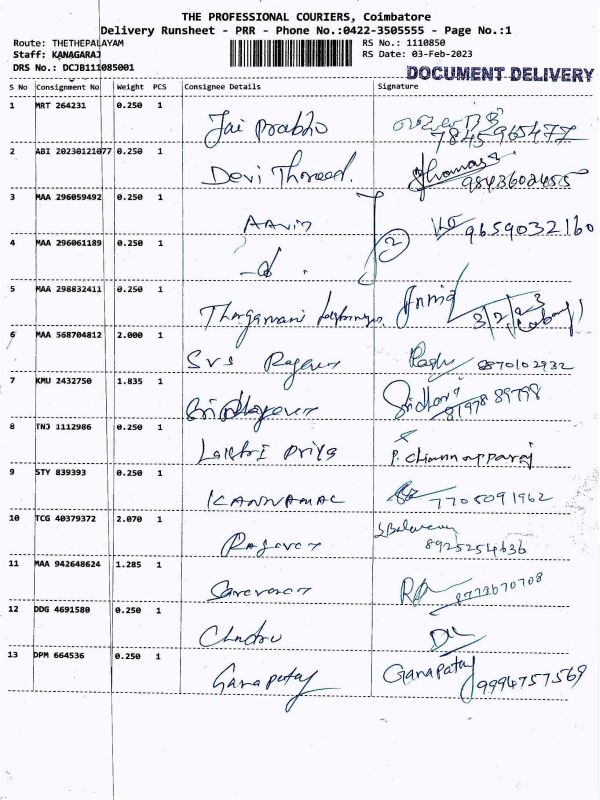 THE PROFESSIONAL COURIERS, Coimbatore
Delivery Runsheet - PRR - Phone No.:0422-3505555 - Page No.:1
Route: THETHEPALAYAM RS No.: 1110850
Staff: KANAGARAJ RS Date: 03-Feb-2023
DRS No.: DCJB111085001 DOCUMENT DELIVERY
S No Consignment No Weight PCS Consignee Details Signature
1 MRT 264231 0.250 1
Jai Prabhu 7845965477
2 ABI 20230121077 0.250 1
Devi 9843602455
3 MAA 296059492 0.250 1
AAvin 9659032160
4 MAA 296061189 0.250 1
2
5 MAA 298832411 0.250 1
Thangamani 3/2/23
6 MAA 568704812 2.000 1
SVS Ragavan 8870102932
7 KMU 2432750 1.835 1
Sridhar 81978 89798
8 TNJ 1112986 0.250 1
Priya P. Chinnapparaj
9 STY 839393 0.250 1
KANNAMAL 7705091962
10 TCG 40379372 2.070 1
Ragavan 8925254636
11 MAA 942648624 1.285 1
Saravanan
12 DDG 4691580 0.250 1
Chndru
13 DPM 664536 0.250 1
Ganapatay Ganapatay 9994757569